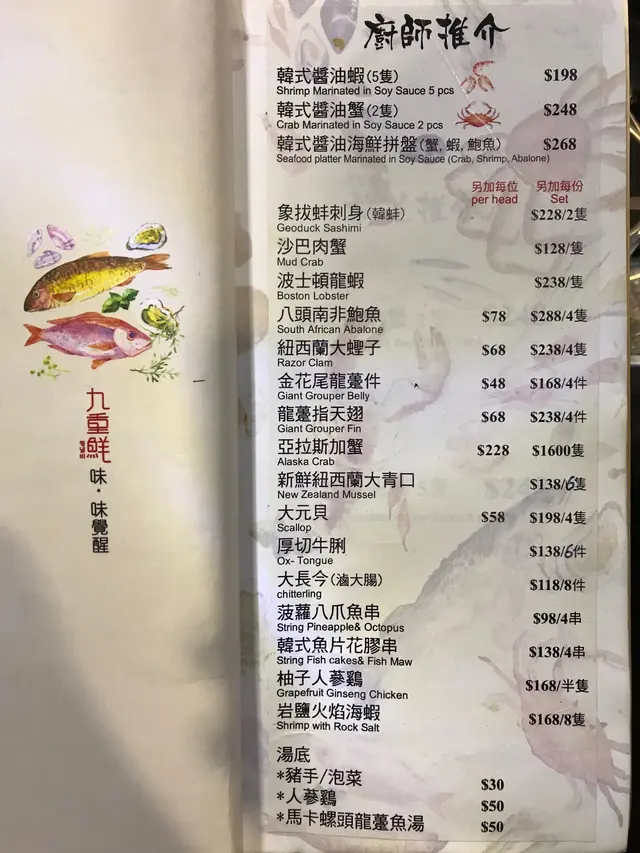 廚師推介
韓式醬油蝦(5隻) $198
Shrimp Marinated in Soy Sauce 5 pcs
韓式醬油蟹(2隻) $248
Crab Marinated in Soy Sauce 2 pcs
韓式醬油海鮮拼盤(蟹, 蝦, 鮑魚) $268
Seafood platter Marinated in Soy Sauce (Crab, Shrimp, Abalone)
另加每位 另加每份
per head Set
象拔蚌刺身(韓蚌) $228/2隻
Geoduck Sashimi
沙巴肉蟹 $128/隻
Mud Crab
波士頓龍蝦 $238/隻
Boston Lobster
八頭南非鮑魚 $78 $288/4隻
South African Abalone
紐西蘭大蟶子 $68 $238/4隻
Razor Clam
金花尾龍躉件 $48 $168/4件
Giant Grouper Belly
龍躉指天翅 $68 $238/4件
Giant Grouper Fin
亞拉斯加蟹 $228 $1600隻
Alaska Crab
新鮮紐西蘭大青口 $138/6隻
New Zealand Mussel
大元貝 $58 $198/4隻
Scallop
厚切牛脷 $138/6件
Ox- Tongue
大長今(滷大腸) $118/8件
chitterling
菠蘿八爪魚串 $98/4串
String Pineapple& Octopus
韓式魚片花膠串 $138/4串
String Fish cakes& Fish Maw
柚子人蔘鷄 $168/半隻
Grapefruit Ginseng Chicken
岩鹽火焰海蝦 $168/8隻
Shrimp with Rock Salt
湯底
*豬手/泡菜 $30
*人蔘鷄 $50
*馬卡螺頭龍躉魚湯 $50
九重鮮
味・味覺醒